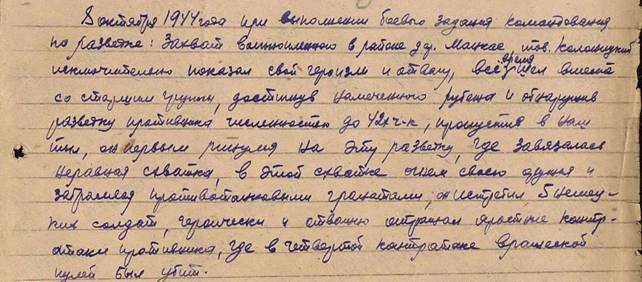 8 октября 1944 года при выполнении боевого задания командования
по разветке: Захват военнопленного в районе дер. Мацкае, тов. Колесницкий
исключительно показал свой героизм и отвагу, всё время шел вместе
со старшим группы, достигнув намеченного рубежа и обнаружив
разветку противника численностью до 42х ч-к, пропустив в наш
тыл, он первым ринулся на эту разветку, где завязалась
неравная схватка, в этой схватке огнем своего оружия и
забрасывая противотанковыми гранатами, он истребил 5 немец-
ких солдат, героически и отважно отражал яростные контр-
атаки противника, где в четвертой контратаке вражеской
пулей был убит.